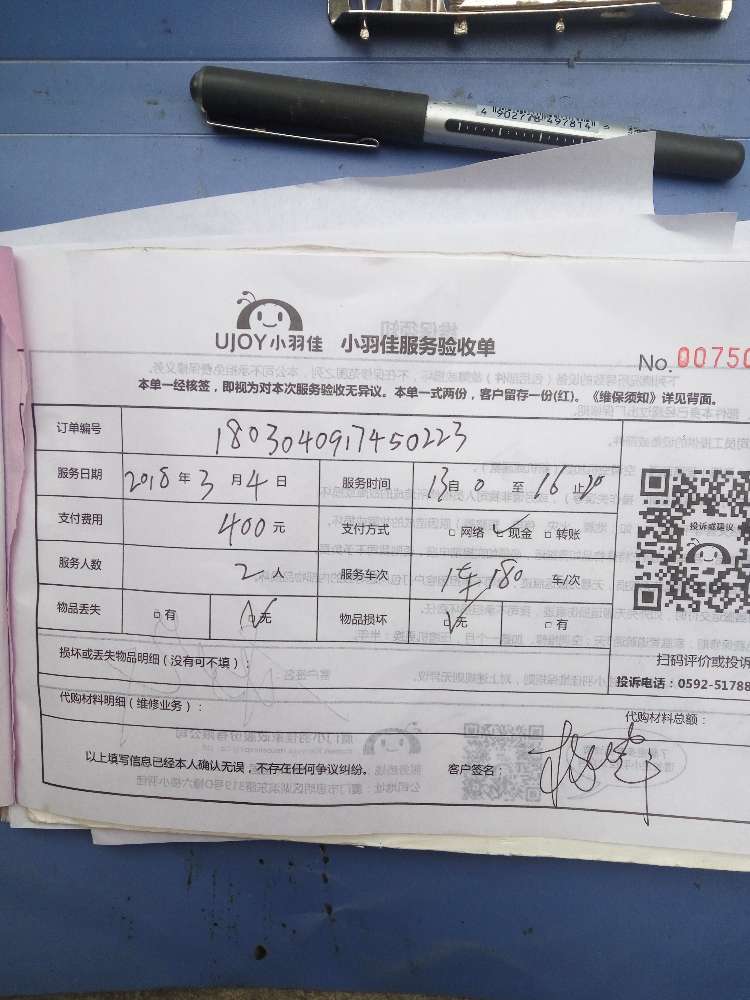 4 902778 497814
UJOY小羽佳 小羽佳服务验收单
No. 00750
本单一经核签，即视为对本次服务验收无异议。本单一式两份，客户留存一份(红)。《维保须知》详见背面。
订单编号 1803040917450223
服务日期 2018年3月4日 服务时间 13自0至16止20
支付费用 400元 支付方式 □网络 ☑现金 □转账
投诉或建议
服务人数 2人 服务车次 1车180 车/次
物品丢失 □有 ☑无 物品损坏 ☑无 □有
损坏或丢失物品明细（没有可不填）：
扫码评价或投诉
投诉电话：0592-51788
代购材料明细（维修业务）：
代购材料总额：
以上填写信息已经本人确认无误，不存在任何争议纠纷。 客户签名：